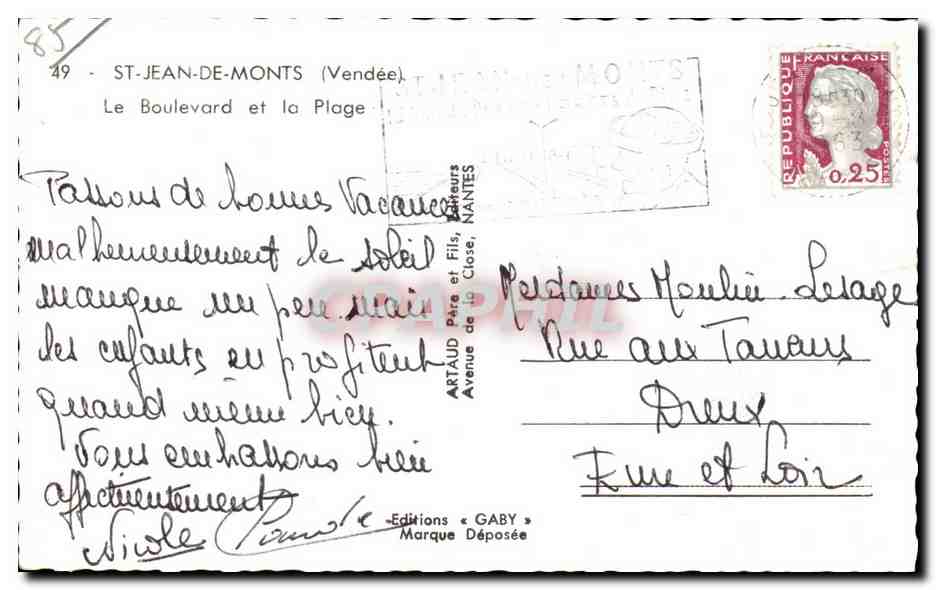 85
49 - ST-JEAN-DE-MONTS (Vendée)
Le Boulevard et la Plage
ST-JEAN-DE-MONTS
RÉPUBLIQUE FRANÇAISE
POSTES
0,25
Passons de bonnes Vacances
malheureusement le soleil
manque un peu mais
les enfants en profitent
quand même bien.
Vous embrassons bien
affectueusement
Nicole
ARTAUD Père et Fils, Editeurs
Avenue de la Close, NANTES
CPAPHIL
Mesdames Moulin-Lesage
Rue aux Tanneurs
Dreux
Eure et Loir
Editions « GABY »
Marque Déposée